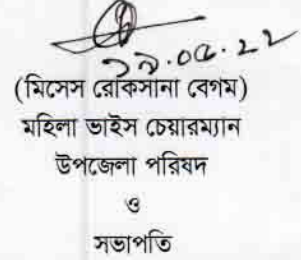 ১৯.০৫.২২
(মিসেস রোকসানা বেগম)
মহিলা ভাইস চেয়ারম্যান
উপজেলা পরিষদ
ও
সভাপতি